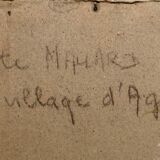 te MAHARS
village d'Ag